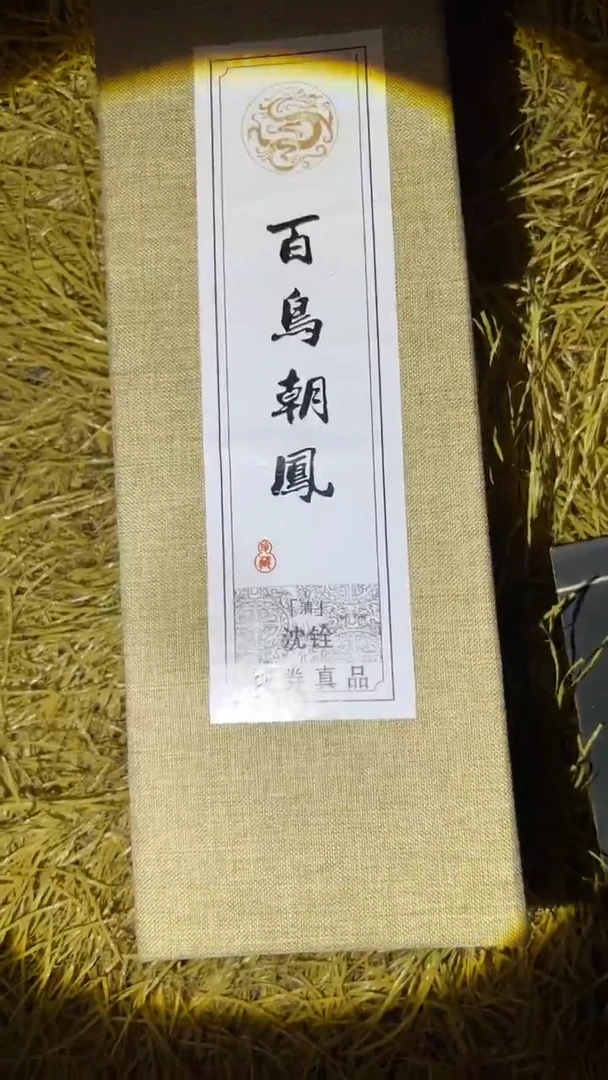 百鳥朝鳳
「清」
沈铨
真品